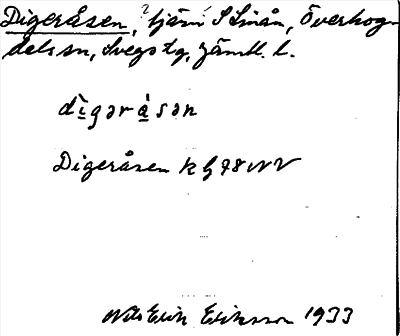 Digeråsen, ? tjärn S Sinån, Överhog-
dals sn, Svegs tg, Jämtl. l.
dìgəràsən
Digeråsen k bl 78 NV
Nils Erik Eriksson 1933